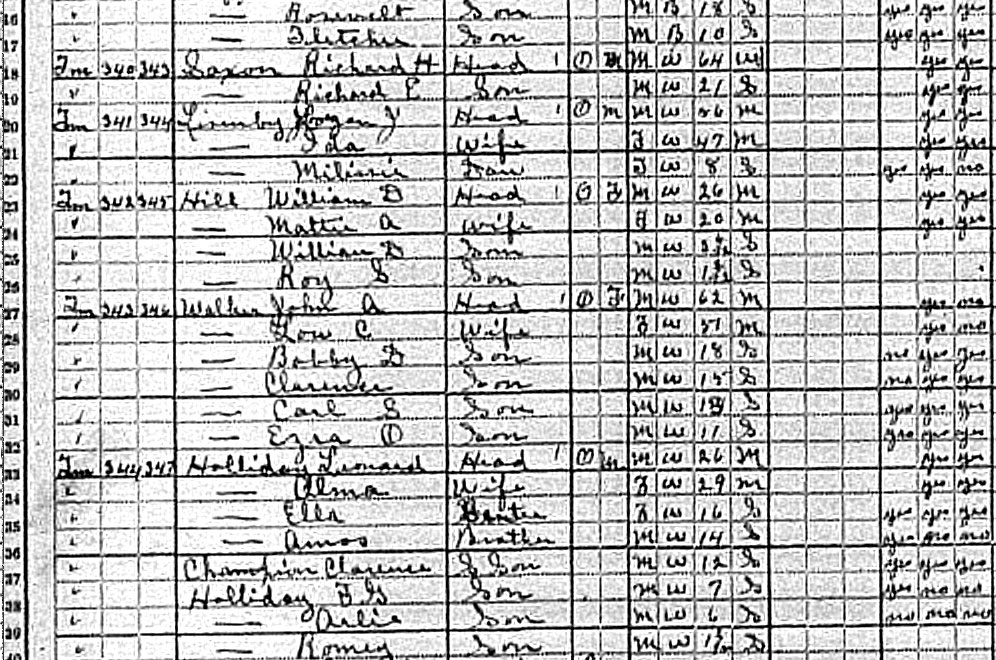 16 — Rosevelt Son M B 18 S yes yes yes
17 " — Fletcher Son M B 10 S yes yes yes
18 Fm 340 343 Saxon Richard H Head 1 O M M W 64 yes yes
19 " — Richard E Son M W 21 S yes yes
20 Fm 341 344 J Head 1 O M M W 56 M yes yes
21 " — Ida Wife F W 47 M yes yes
22 " — Dau F W 8 S yes yes no
23 Fm 342 345 Hill William D Head 1 O F M W 26 M yes yes
24 " — Mattie A Wife F W 20 M yes yes
25 " — William D Son M W S
26 " — Roy S Son M W S
27 Fm 343 346 Walker John A Head 1 O F M W 62 M yes
28 " — Lou C Wife F W 51 M yes no
29 " — Bobby D Son M W 18 S no yes yes
30 " — Clarence Son M W 15 S no yes yes
31 " — Carl S Son M W S yes yes yes
32 " — Ezra O Son M W 11 S yes yes yes
33 Fm 344 347 Holliday Leonard Head 1 O M M W 26 M yes yes
34 " — Alma Wife F W 29 M yes yes
35 " — Ella F W 16 S yes yes yes
36 " — Amos Brother M W 14 S yes yes no
37 " Champion Clarence S Son M W 12 S yes yes yes
38 " Holliday F G Son M W 7 S yes no no
39 " — Arlie Son M W 6 S no no no
40 " — Romey Son M W S